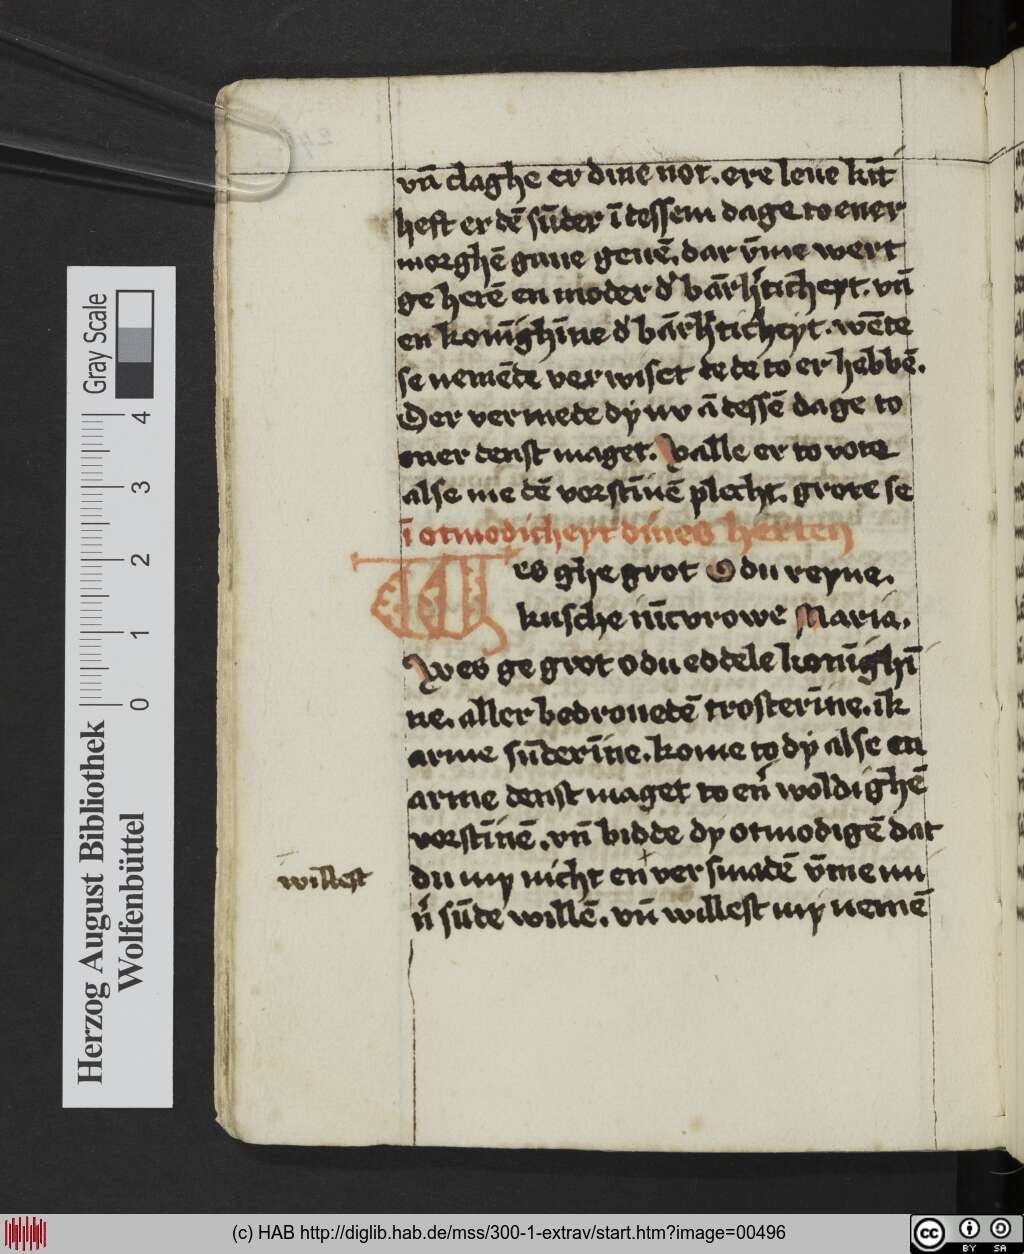 vn̄ claghe er dine not. ere leue kīt
heft er dē sūder ī dessem dage to ener
morghē gaue geuē. dar v̄me wert
ge hetē en moder d' bārh'ticheyt. vn̄
en konīghīne d' bārh'ticheyt. wēte
se nemēde vorwiset de de to er hebbē.
Der vermede dy nv ā dessē dage to
ener denst maget. Valle er to vote
alse me dē vorstīnē plecht. grote se
ī otmodicheyt dines herten
Wes ghe grot O du reyne.
kusche iūcvrowe Maria.
Wes ge grot o du eddele konīghī
ne. aller bedrouetē trosterīne. ik
arme sūderīne. kome to dy alse en
arme denst maget to en' woldighē
vorstīnē. vn̄ bidde dy otmodigē dat
du my nicht en vorsmadē v̄me mi
n' sūde willē. vn̄ willest my nemē
willest
Gray Scale
4
3
2
1
0
Herzog August Bibliothek
Wolfenbüttel
(c) HAB http://diglib.hab.de/mss/300-1-extrav/start.htm?image=00496
cc BY SA